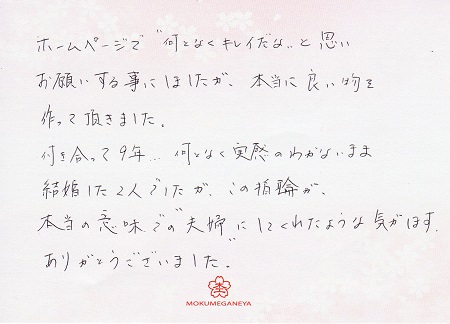 ホームページで"何となくキレイだな"と思い
お願いする事にしましたが、本当に良い物を
作って頂きました。
付き合って9年…何となく実感のわかないまま
結婚した2人でしたが、この指輪が、
本当の意味での"夫婦"にしてくれたような気がします。
ありがとうございました。
MOKUMEGANEYA